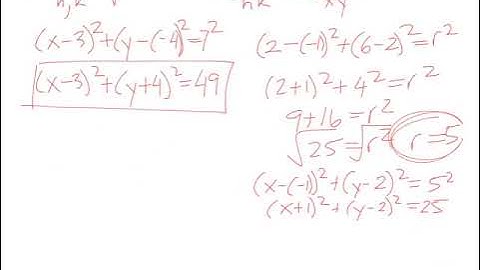 h,k
hk
xy
(x-3)²+(y-(-4)²=7²
(x-3)²+(y+4)²=49
(2-(-1)²+(6-2)²=r²
(2+1)²+4²=r²
9+16=r²
√25=√r² r=5
(x-(-1)²+(y-2)²=5²
(x+1)²+(y-2)²=25